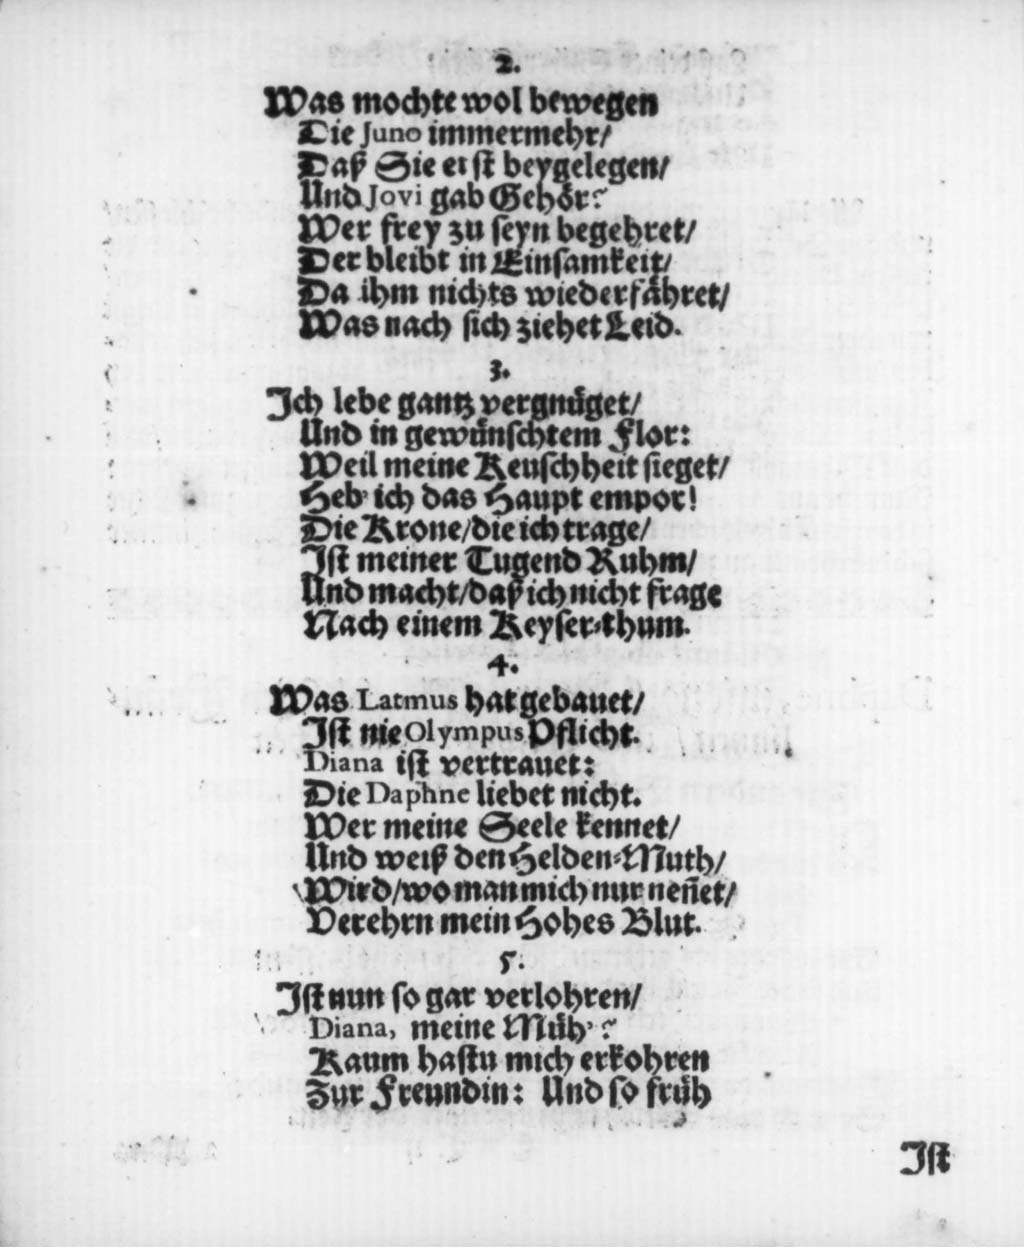 2.
Was mochte wol bewegen
Die Juno immermehr/
Daß Sie erst beygelegen/
Und Jovi gab Gehör?
Wer frey zu seyn begehret/
Der bleibt in Einsamkeit/
Da ihm nichts wiederfähret/
Was nach sich ziehet Leid.
3.
Ich lebe gantz vergnüget/
Und in gewünschtem Flor:
Weil meine Keuschheit sieget/
Heb' ich das Haupt empor!
Die Krone/die ich trage/
Ist meiner Tugend Ruhm/
Und macht/daß ich nicht frage
Nach einem Keyser-thum.
4.
Was Latmus hat gebauet/
Ist nie Olympus Pflicht.
Diana ist vertrauet:
Die Daphne liebet nicht.
Wer meine Seele kennet/
Und weiß den Helden-Muth/
Wird/wo man mich nur neñet/
Verehrn mein Hohes Blut.
5.
Ist nun so gar verlohren/
Diana, meine Müh'?
Kaum hastu mich erkohren
Zur Freundin: Und so früh
Ist